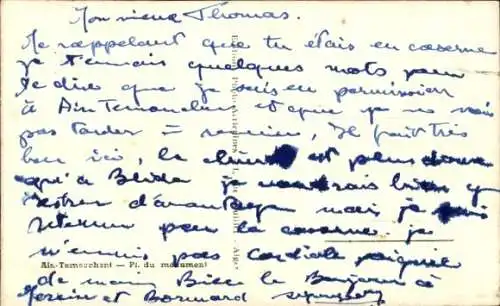 Mon vieux Thomas.
Me rappelant que tu étais en caserne
je t'envais quelques mots pour
te dire que je suis en permission
à Ain Temouchent et que je ne vais
pas tarder à revenir, Il fait très
bon ici, le climat est plus doux
qu'à Blida je voudrais bien y
rester d'avantage mais je dois
retourner pour la caserne. je
m'ennuis pas Cordiale poignée
de main Bien le Bonjour à
et Bormard
Aïn-Temouchent — Pl. du monument